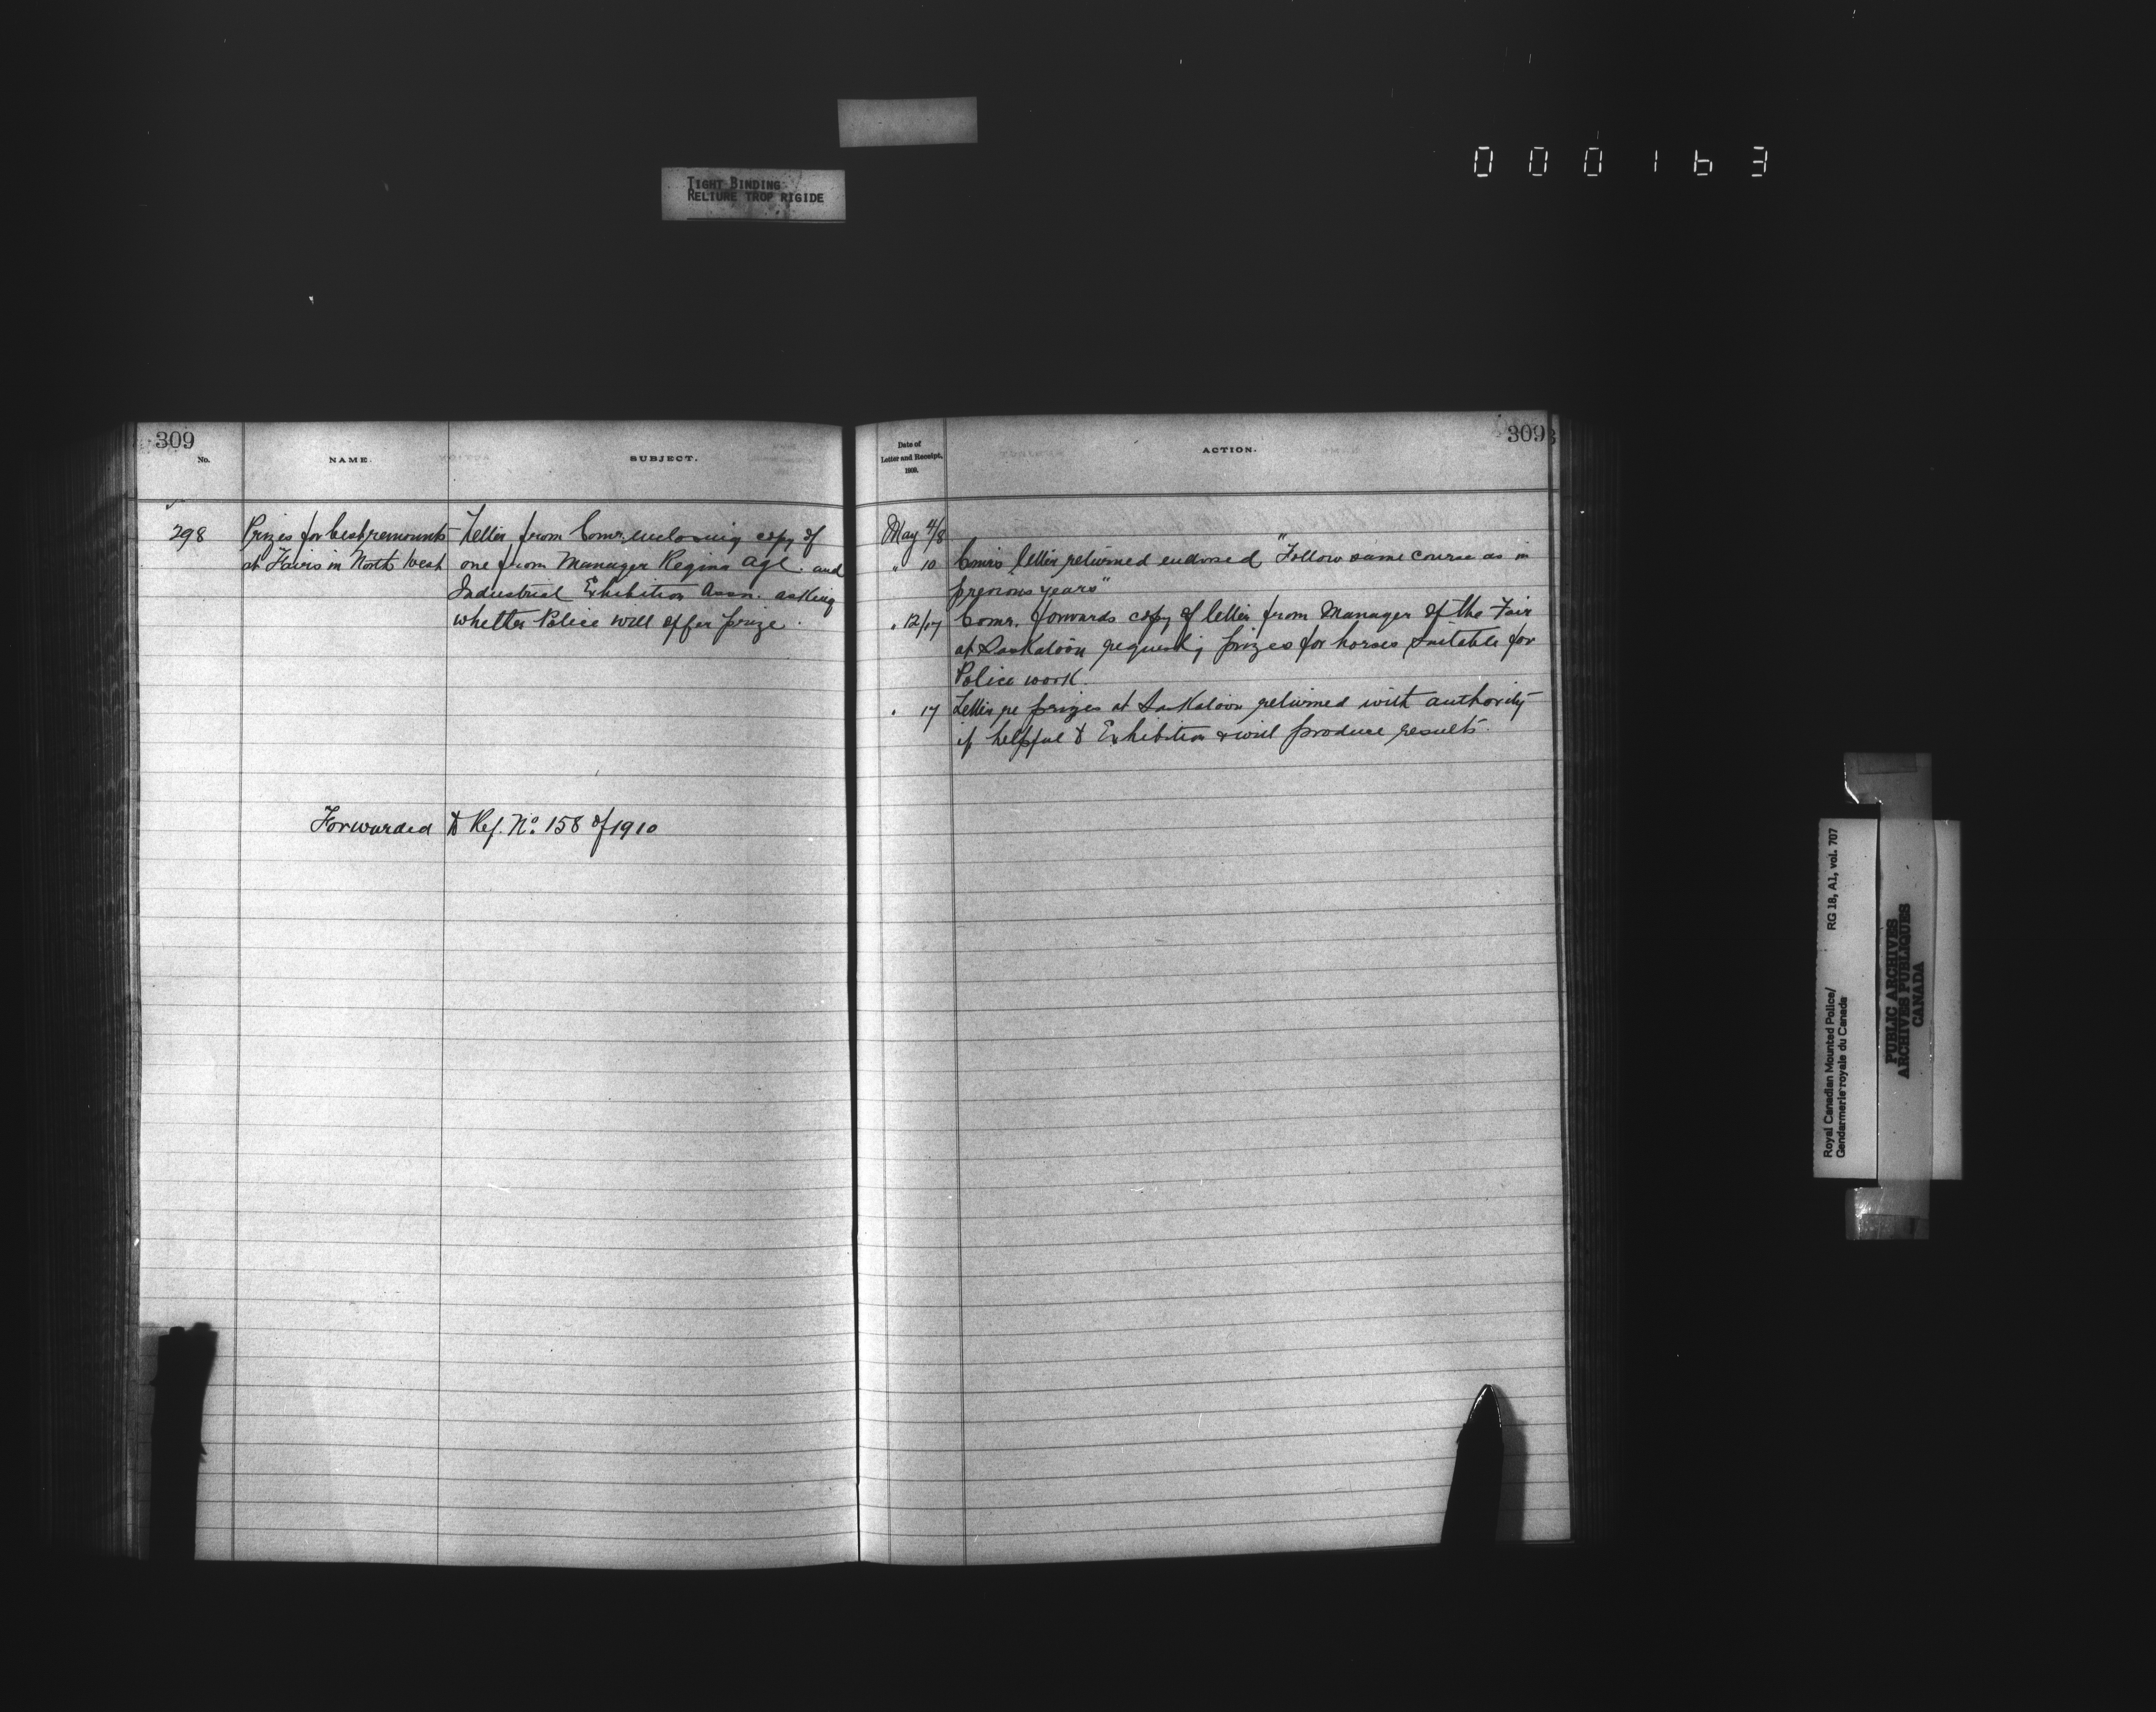 000163
TIGHT BINDING
RELIURE TROP RIGIDE
309
No.
NAME.
SUBJECT.
298
Prizes for best remounts
at Fairs in North West
Letter from Comr. enclosing copy of
one from Manager Regina Agl. and
Industrial Exhibition Assn. asking
whether Police will offer prize.
Forwarded to Ref. No. 158 of 1910
309
Date of
Letter and Receipt,
1909.
ACTION.
May 4/8
" 10 Comr's letter returned endorsed "Follow same course as in
previous years"
" 12/17 Comr. forwards copy of letter from Manager of the Fair
at Saskatoon requestg prizes for horses suitable for
Police work.
" 17 Letter re prizes at Saskatoon returned with authority
if helpful to Exhibition & will produce results.
Royal Canadian Mounted Police/
Gendarmerie royale du Canada
RG 18, A1, vol. 707
PUBLIC ARCHIVES
ARCHIVES PUBLIQUES
CANADA